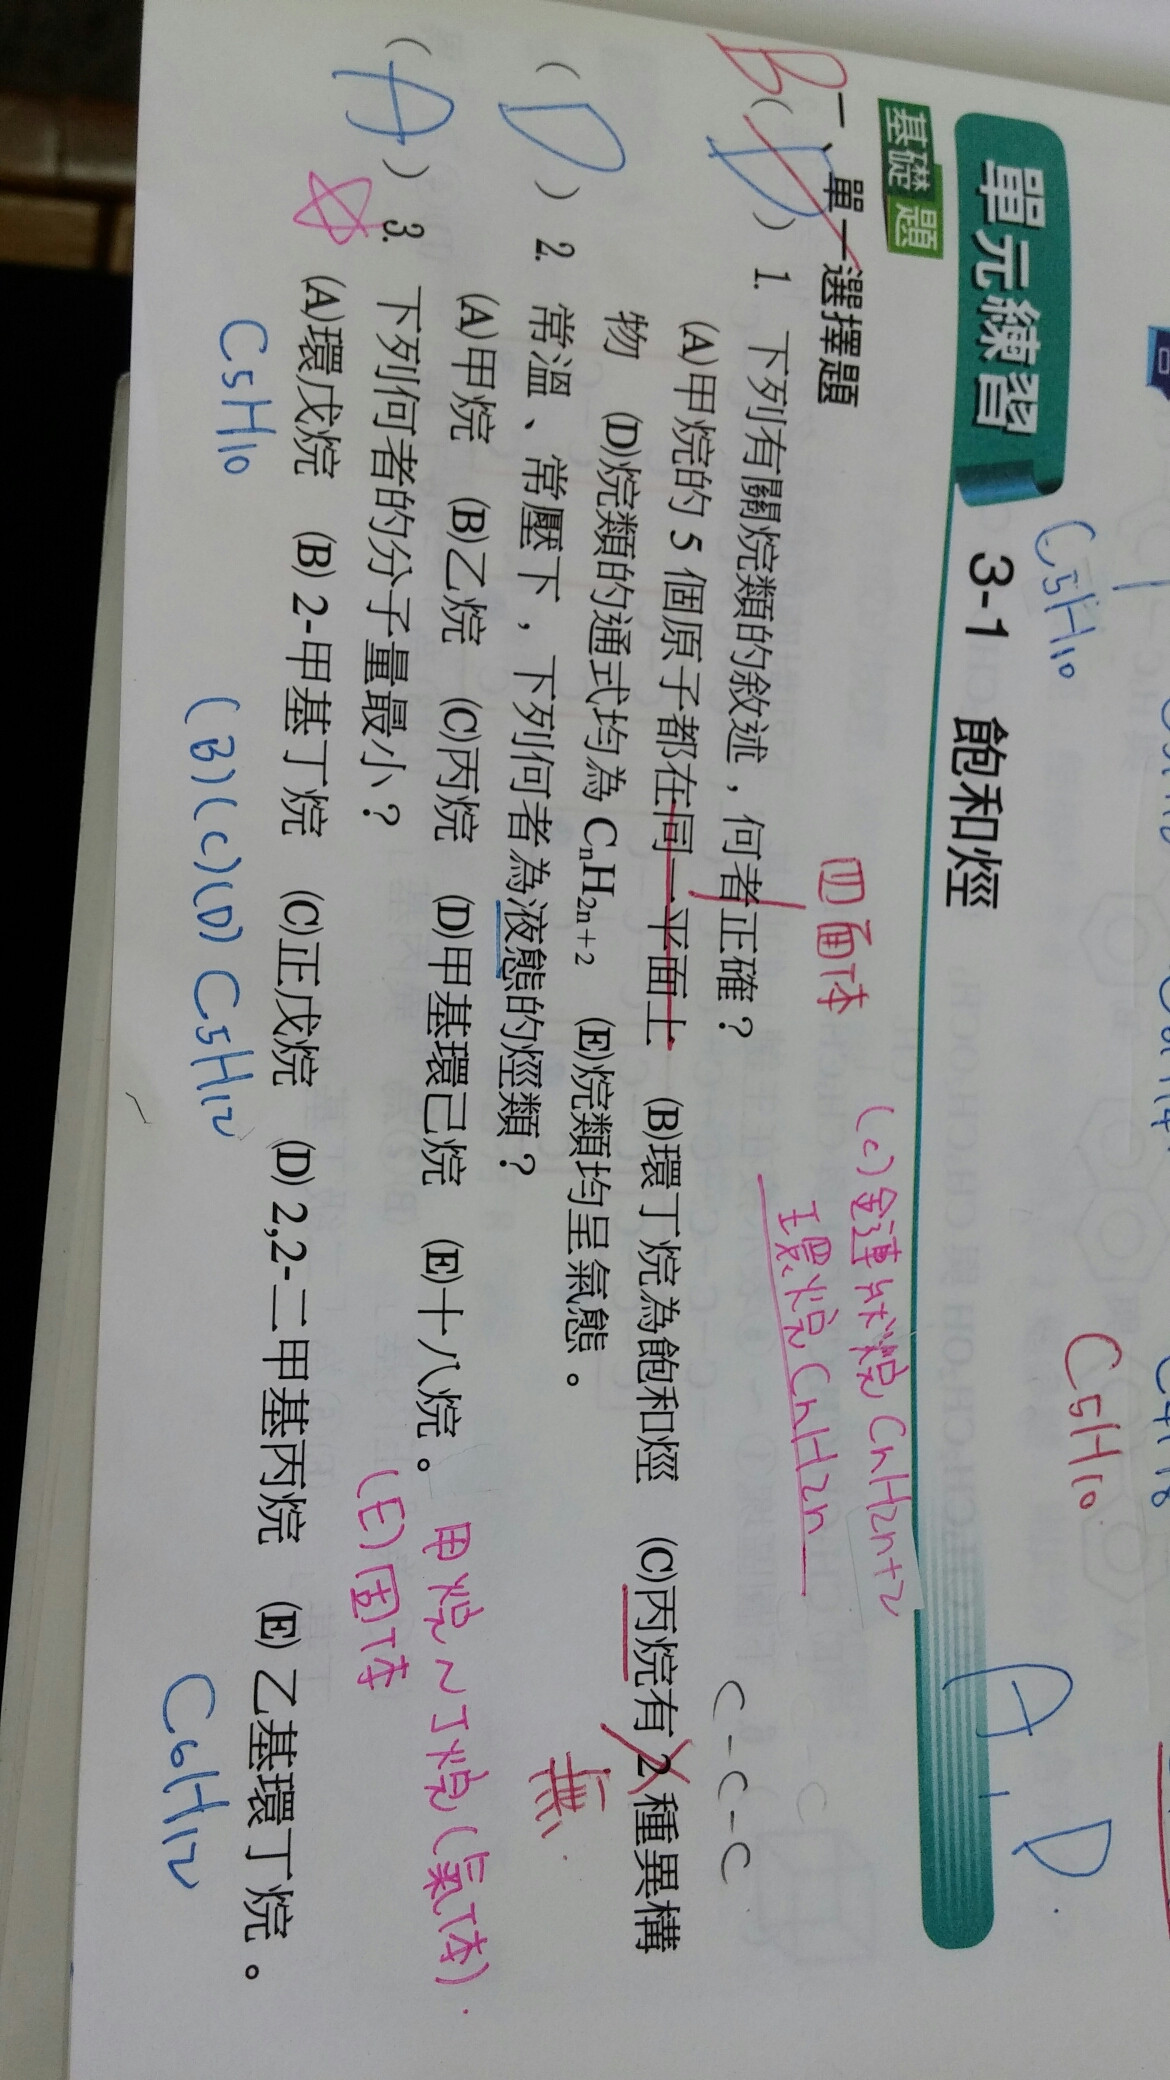 C5H10
C5H10
單元練習 3-1 飽和烴
A、D
基礎題
(C)鏈狀烷 CnH2n+2
環烷 CnH2n
四面体
一、單一選擇題
C-C-C
B( D ) 1. 下列有關烷類的敘述，何者正確？
(A)甲烷的 5 個原子都在同一平面上 (B)環丁烷為飽和烴 (C)丙烷有 2 種異構
物 (D)烷類的通式均為 CnH2n+2 (E)烷類均呈氣態。
無
( D ) 2. 常溫、常壓下，下列何者為液態的烴類？
(A)甲烷 (B)乙烷 (C)丙烷 (D)甲基環己烷 (E)十八烷。
甲烷~丁烷(氣体).
(E)固体
( A ) 3. 下列何者的分子量最小？
(A)環戊烷 (B) 2-甲基丁烷 (C)正戊烷 (D) 2,2-二甲基丙烷 (E) 乙基環丁烷。
C5H10
(B)(C)(D) C5H12
C6H12